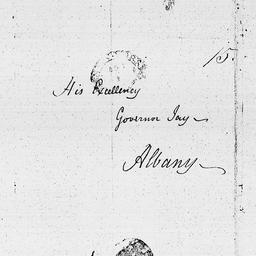 15.
His Excellency
Governor Jay
Albany